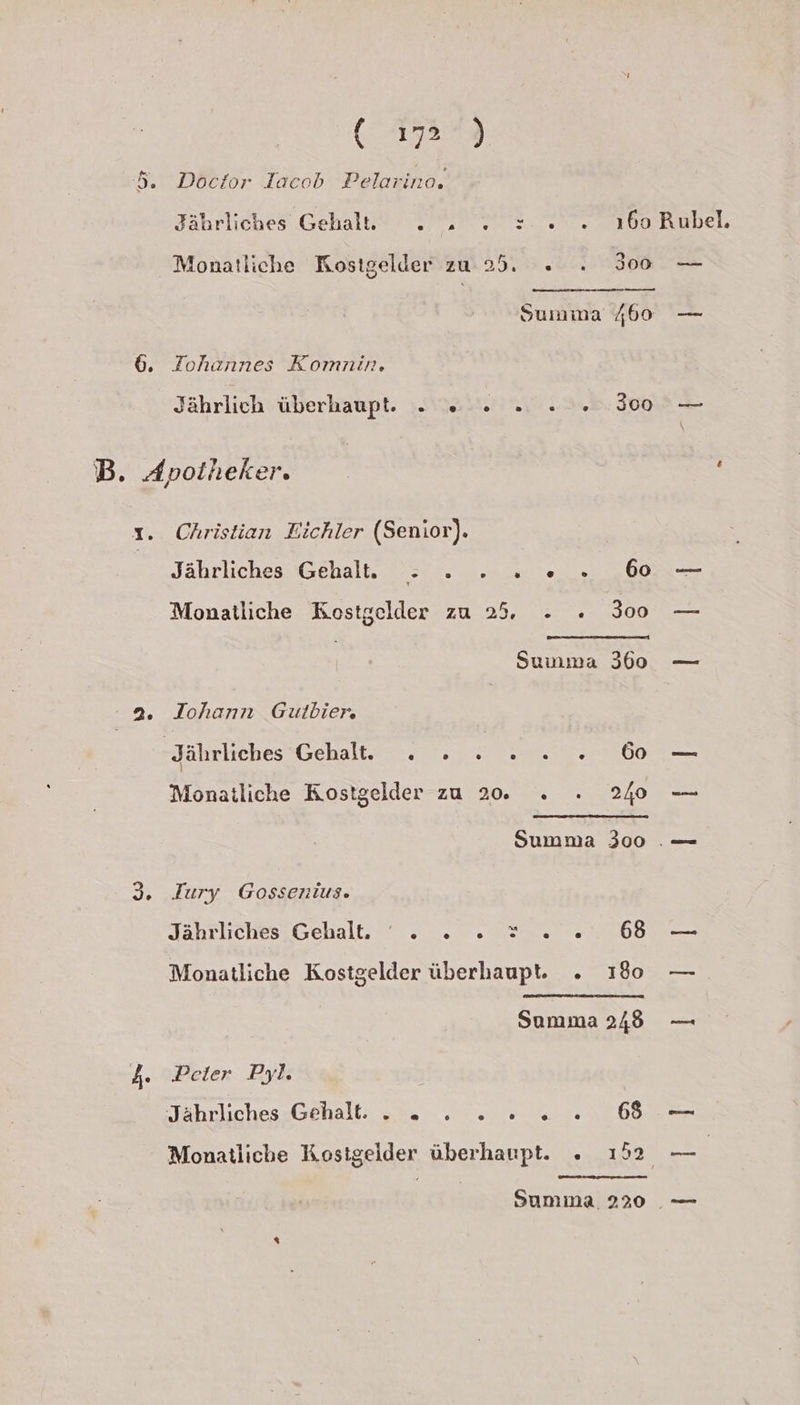 ( 172 )
5. Doctor Iacob Pelarino.
Jährliches Gehalt. . . . . . . 160 Rubel.
Monatliche Kostgelder zu 25. . . 300 —
Summa 460 —
6. Iohannes Komnin.
Jährlich überhaupt. . . . . . . 300 —
B. Apotheker.
1. Christian Eichler (Senior).
Jährliches Gehalt. . . . . . . 60 —
Monatliche Kostgelder zu 25. . . 300 —
Summa 360 —
2. Iohann Gutbier.
Jährliches Gehalt. . . . . . . 60 —
Monatliche Kostgelder zu 20. . . 240 —
Summa 300 —
3. Iury Gossenius.
Jährliches Gehalt. . . . . . . 68 —
Monatliche Kostgelder überhaupt. . 180 —
Summa 248 —
4. Peter Pyl.
Jährliches Gehalt. . . . . . . . 68 —
Monatliche Kostgelder überhaupt. . 152 —
Summa 220 —